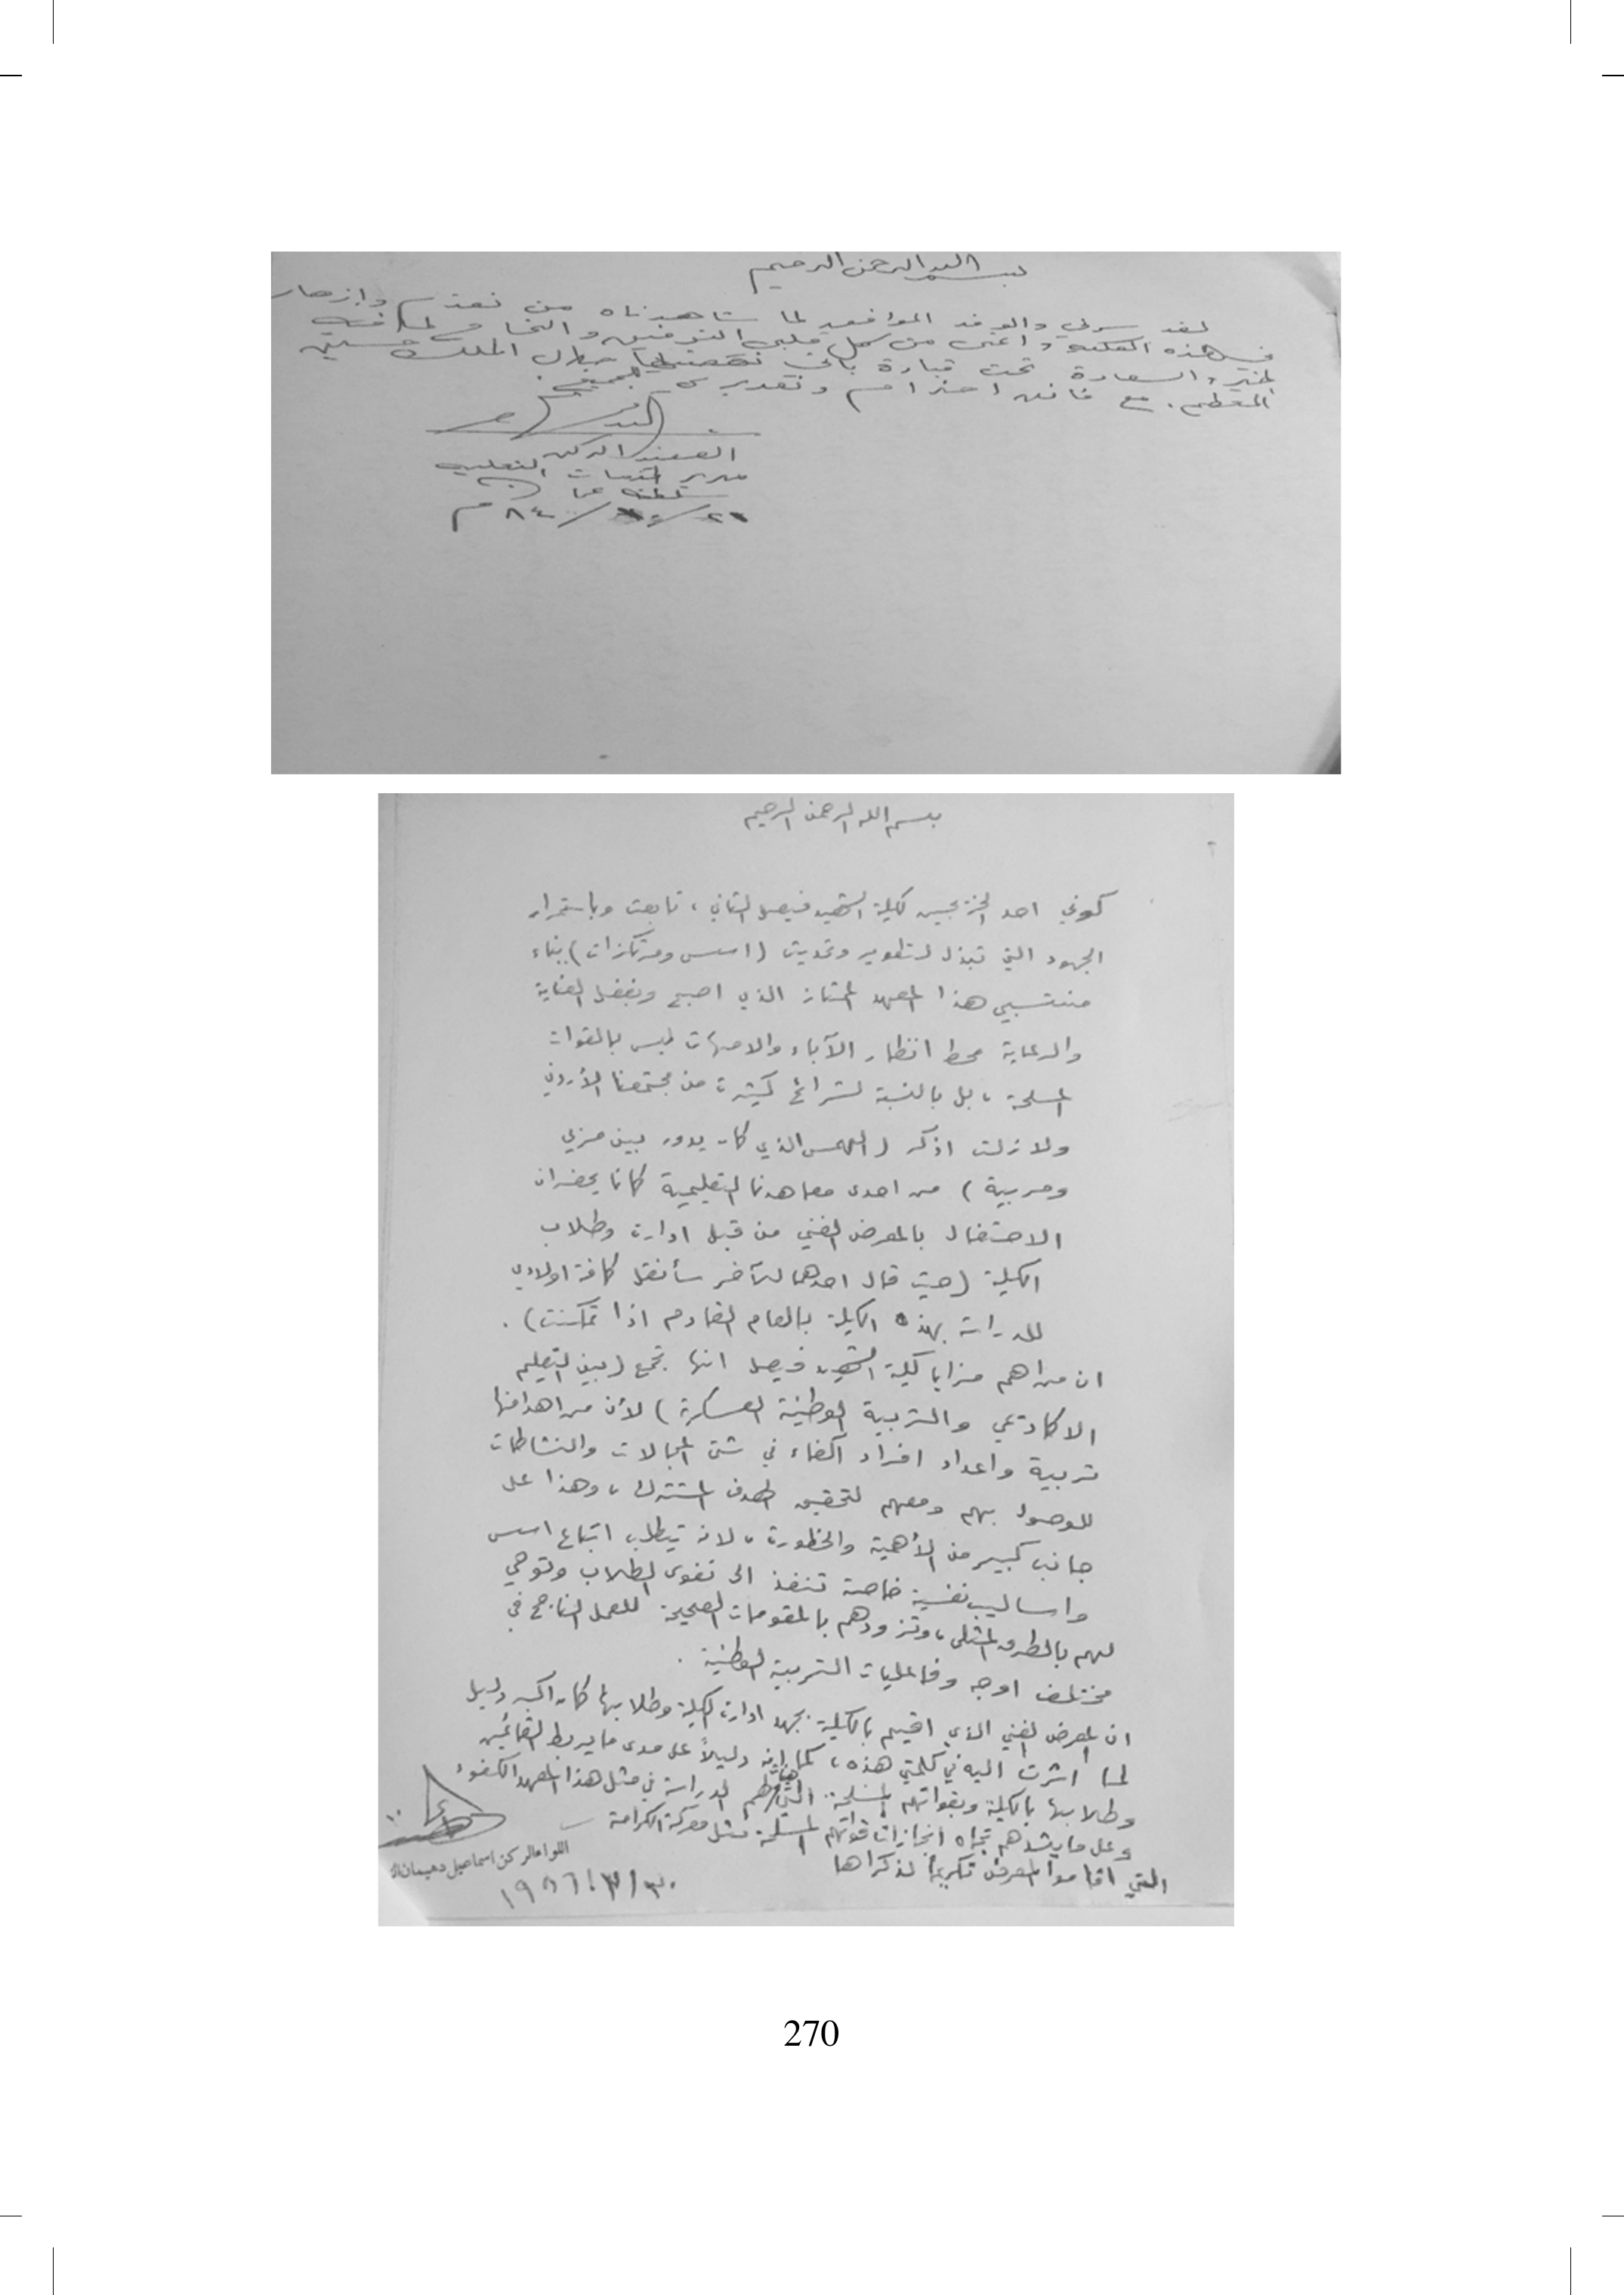 بسم الله الرحمن الرحيم
لقد سرني والوفد المرافق لما شاهدناه من تقدم وازدهار
في هذه الكلية واتمنى من كل قلبي التوفيق والنجاح
الخير والسعادة تحت قيادة باني نهضتها جلال الملك حسين
المعظم. مع فائق احترامي وتقديري للجميع.
العقيد الركن
مدير الخدمات التعليمية
سلطنة عمان
بسم الله الرحمن الرحيم
كوني احد الخريجين لكلية الشهيد فيصل الثاني ، تابعت وباستمرار
الجهود التي تبذل لتطوير وتحديث (اسس ومرتكزات) بناء
منتسبي هذا المعهد الممتاز الذي اصبح وبفضل العناية
والرعاية محط انظار الآباء والامهات ليس بالقوات
المسلحة ، بل بالنسبة لشرائح كثيرة من مجتمعنا الأردني
ولا زلت اذكر (الهمس الذي كان يدور بين مربي
ومربية) من احدى معاهدنا التعليمية كانا يحضران
الاحتفال بالمعرض الفني من قبل ادارة وطلاب
الكلية (حيث قال احدهما للآخر سأنقل كافة اولادي
للدراسة بهذه الكلية بالعام القادم اذا تمكنت) .
ان من اهم مزايا كلية الشهيد فيصل انها تجمع (بين التعليم
الاكاديمي والتربية الوطنية العسكرية) لأن من اهدافها
تربية واعداد افراد اكفاء في شتى المجالات والنشاطات
للوصول بهم ومعهم لتحقيق الهدف المشترك ، وهذا على
جانب كبير من الأهمية والخطورة ، لانه يتطلب اتباع اسس
واساليب نفسية خاصة تنفذ الى نفوس الطلاب وتوحي
لهم بالطرق المثلى ، وتزودهم بالمقومات الصحيحة للعمل الناجح في
مختلف اوجه وفاعليات التربية الوطنية .
ان المعرض الفني الذي اقيم بالكلية بجهد ادارة الكلية وطلابها كان اكبر دليل
لما أشرت اليه في كلمتي هذه ، كما انه دليلاً على مدى ما يربط القائمين
وطلابها بالكلية وبقواتهم المسلحة التي هيأت لهم الدراسة في مثل هذا المعهد الكفوء
وعلى ما يشدهم تجاه انجازات قواتهم المسلحة مثل معركة الكرامة
التي اقاموا المعرض تكريماً لذكراها
اللواء الركن اسماعيل دهيمان
270